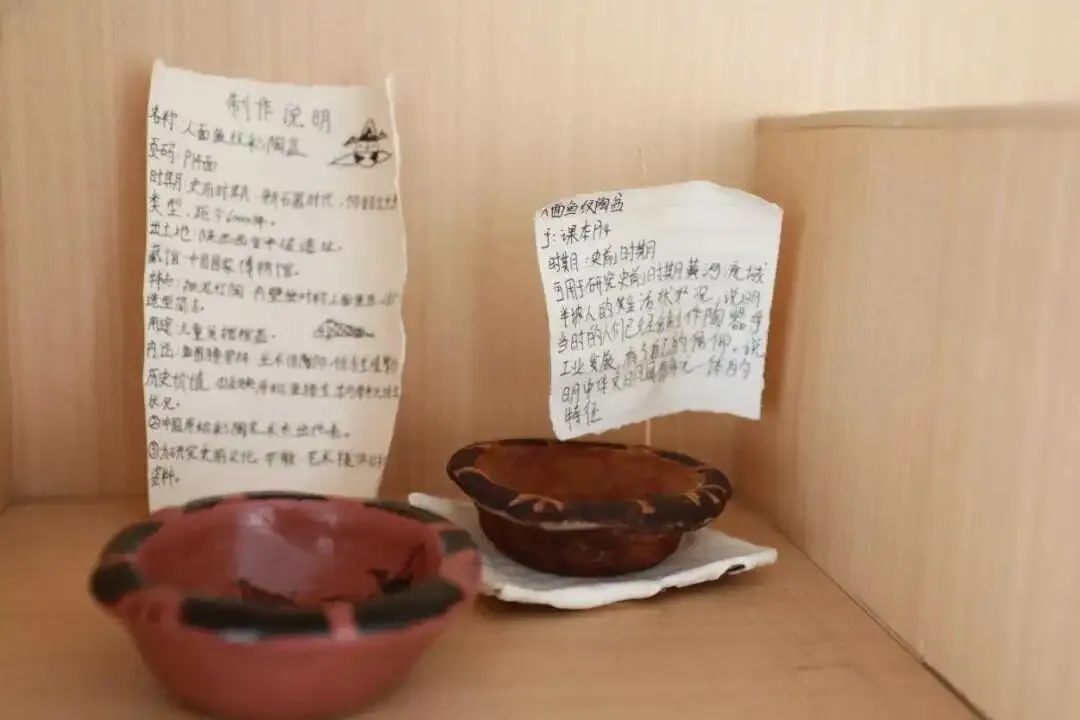 制作说明
名称:人面鱼纹彩陶盆
页码:P14面
时期:史前时期,新石器时代,仰韶
类型,距今6000年。
出土地:陕西西安半坡遗址。
藏馆:中国国家博物馆。
特点:细泥红陶 内壁绘对称人面鱼
造型简
用途:儿童瓮棺棺盖。
内
历史价值 反映原始
状况。
②中国原始彩陶艺术杰出代表。
③为研究史前文化、宗教、艺术提供
资料。
人面鱼纹陶盆
于:课本P14
时期:史前时期
可用于研究史前时期黄河流域
半坡人的生活状况,说明
当时的人们已经会制作陶器手
工业发展,有了自己的信仰。说
明中华文明
特征